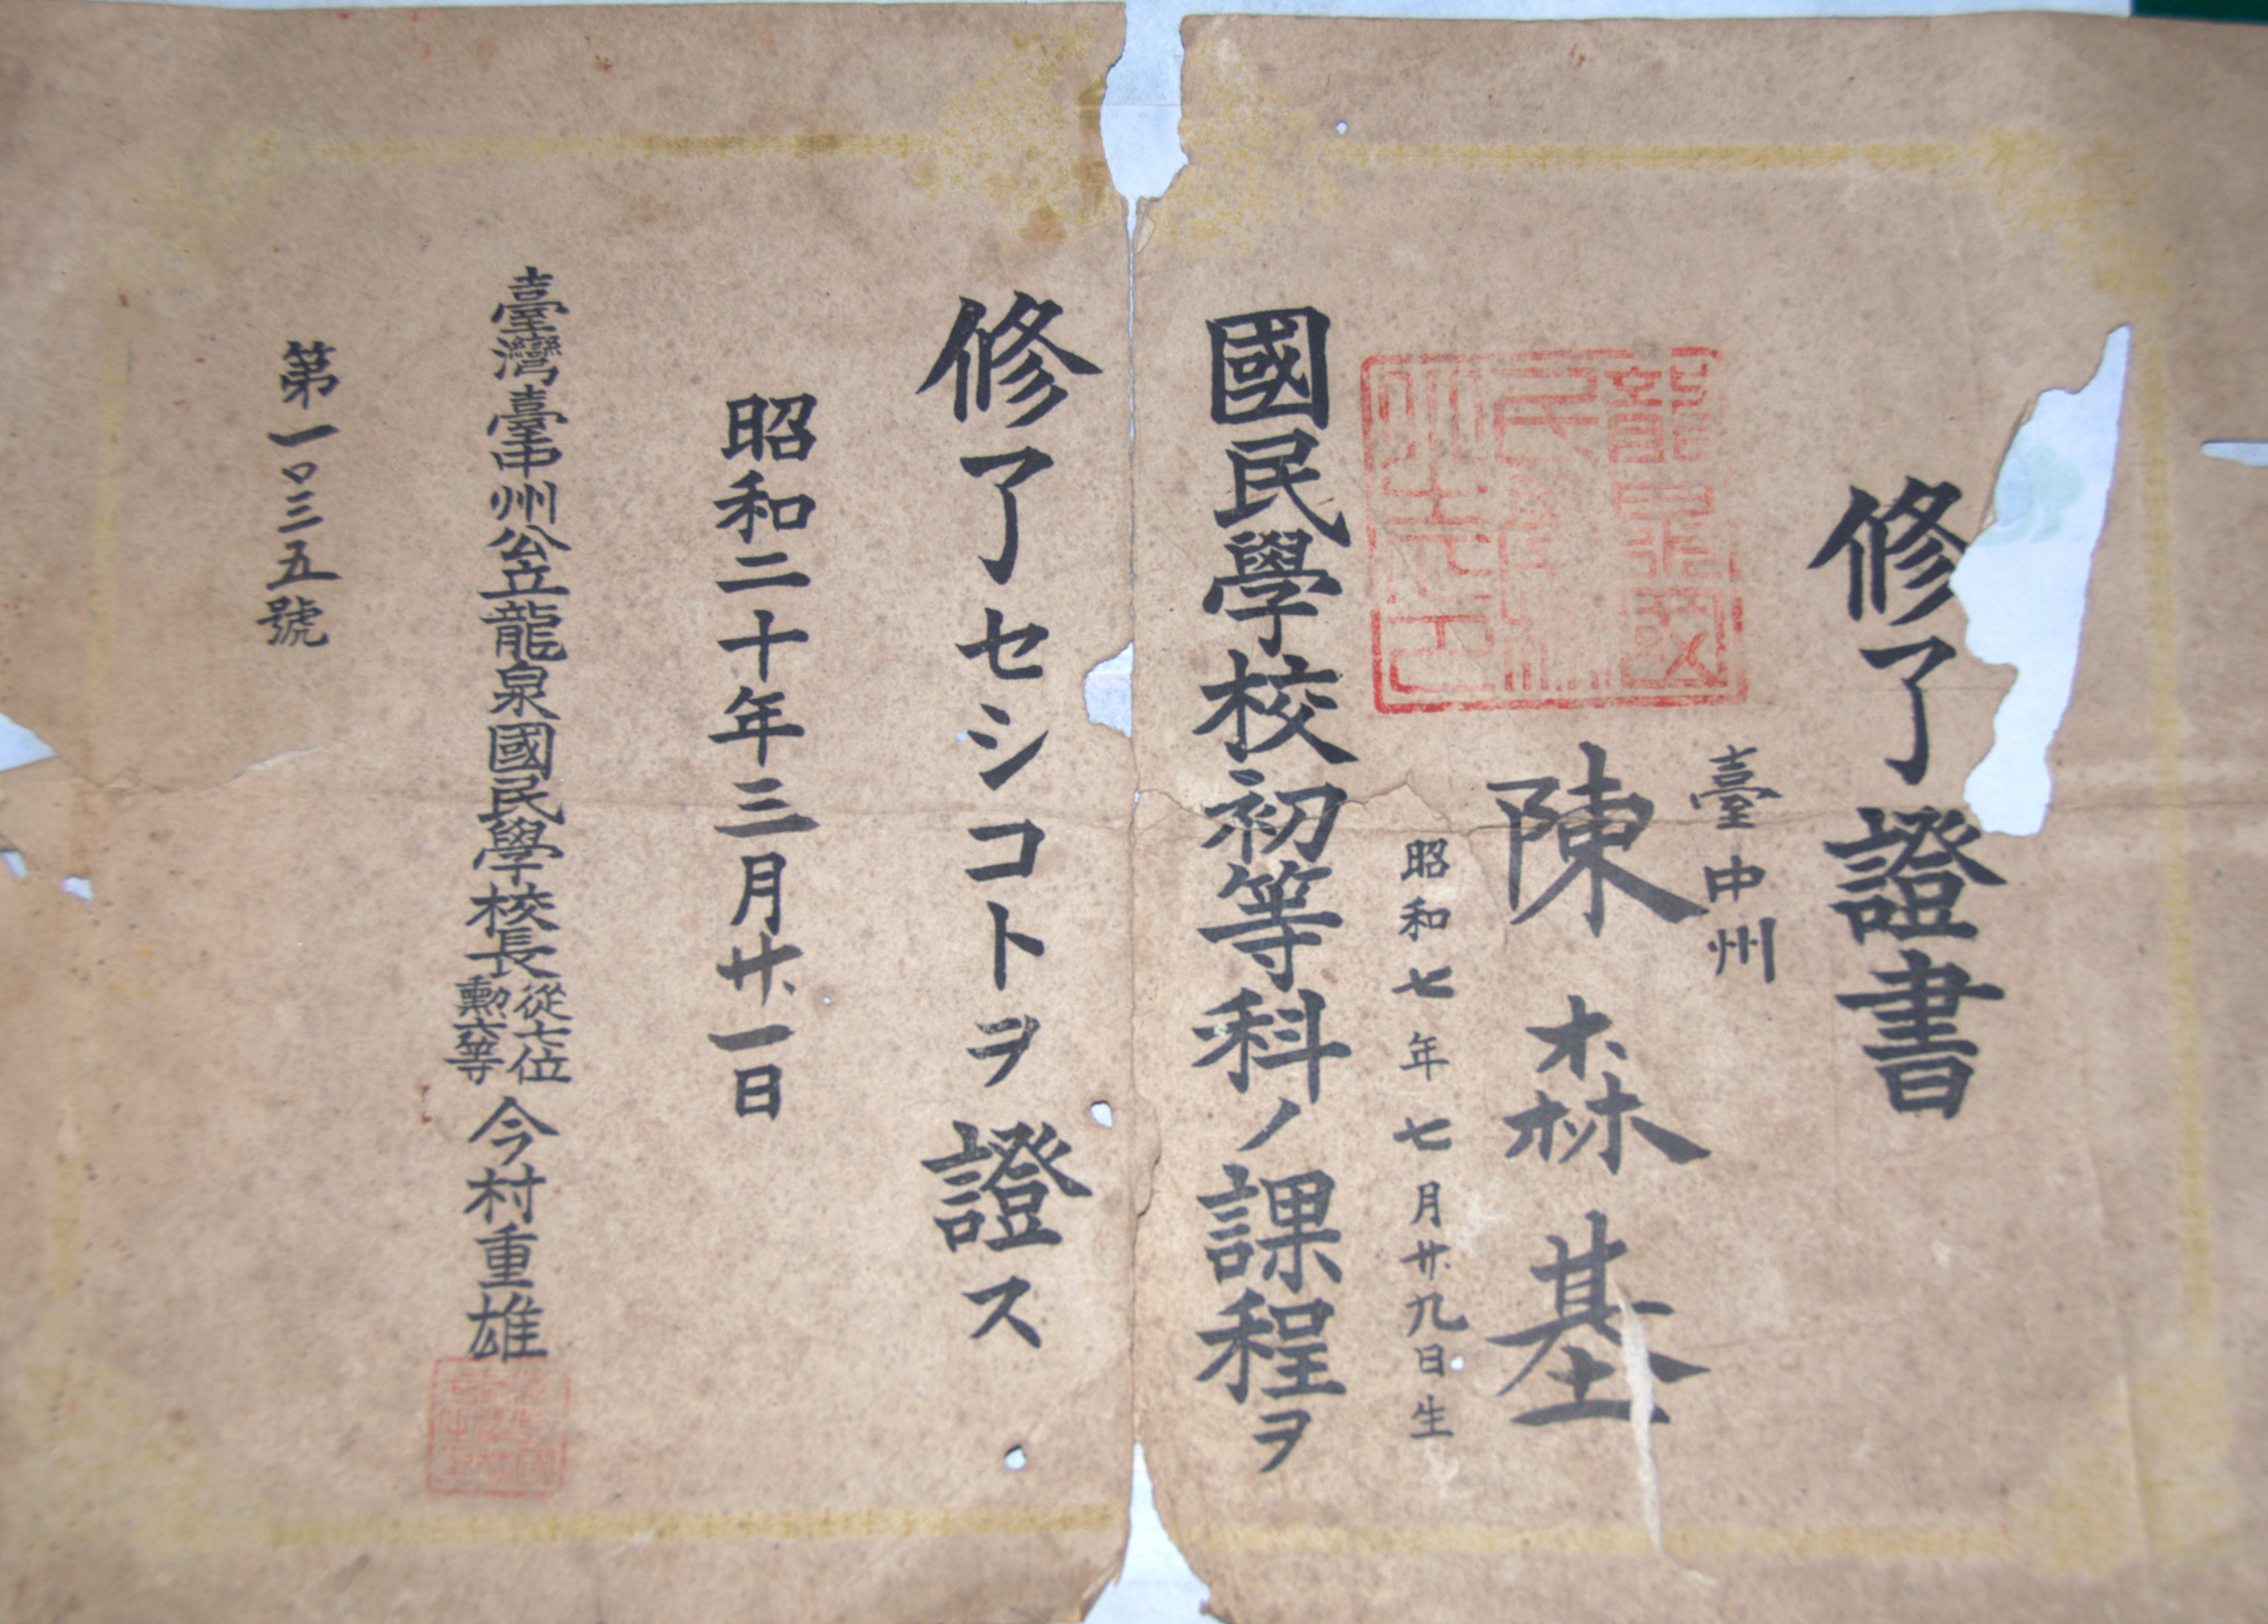 修了證書
臺中州
陳森基
昭和七年七月廿九日生
國民學校初等科ノ課程ヲ
修了セシコトヲ證ス
昭和二十年三月廿一日
臺灣臺中州公立龍泉國民學校長從七位勲六等今村重雄
第一〇三五號
龍泉國
民學校